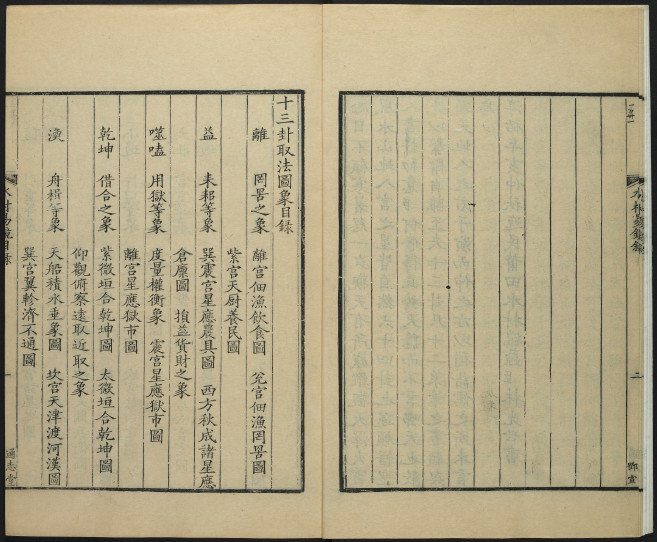 十三卦取法圖象目錄
離 罔罟之象 離宮佃漁飲食圖 兊宮佃漁罔罟圖
紫宮天厨養民圖
益 耒耜等象 巽震宮星應農具圖 西方秋成諸星應
倉廩圖 損益貨財之象
噬嗑 用獄等象 度量權衡象 震宮星應獄市圖
離宮星應獄市圖
乾坤 借合之象 紫微垣合乾坤圖 太微垣合乾坤圖
仰觀俯察遠取近取之象
渙 舟楫等象 天船積水垂象圖 坎宮天津渡河漢圖
巽宮翼軫濟不通圖
水村易鏡目錄 一 通志堂